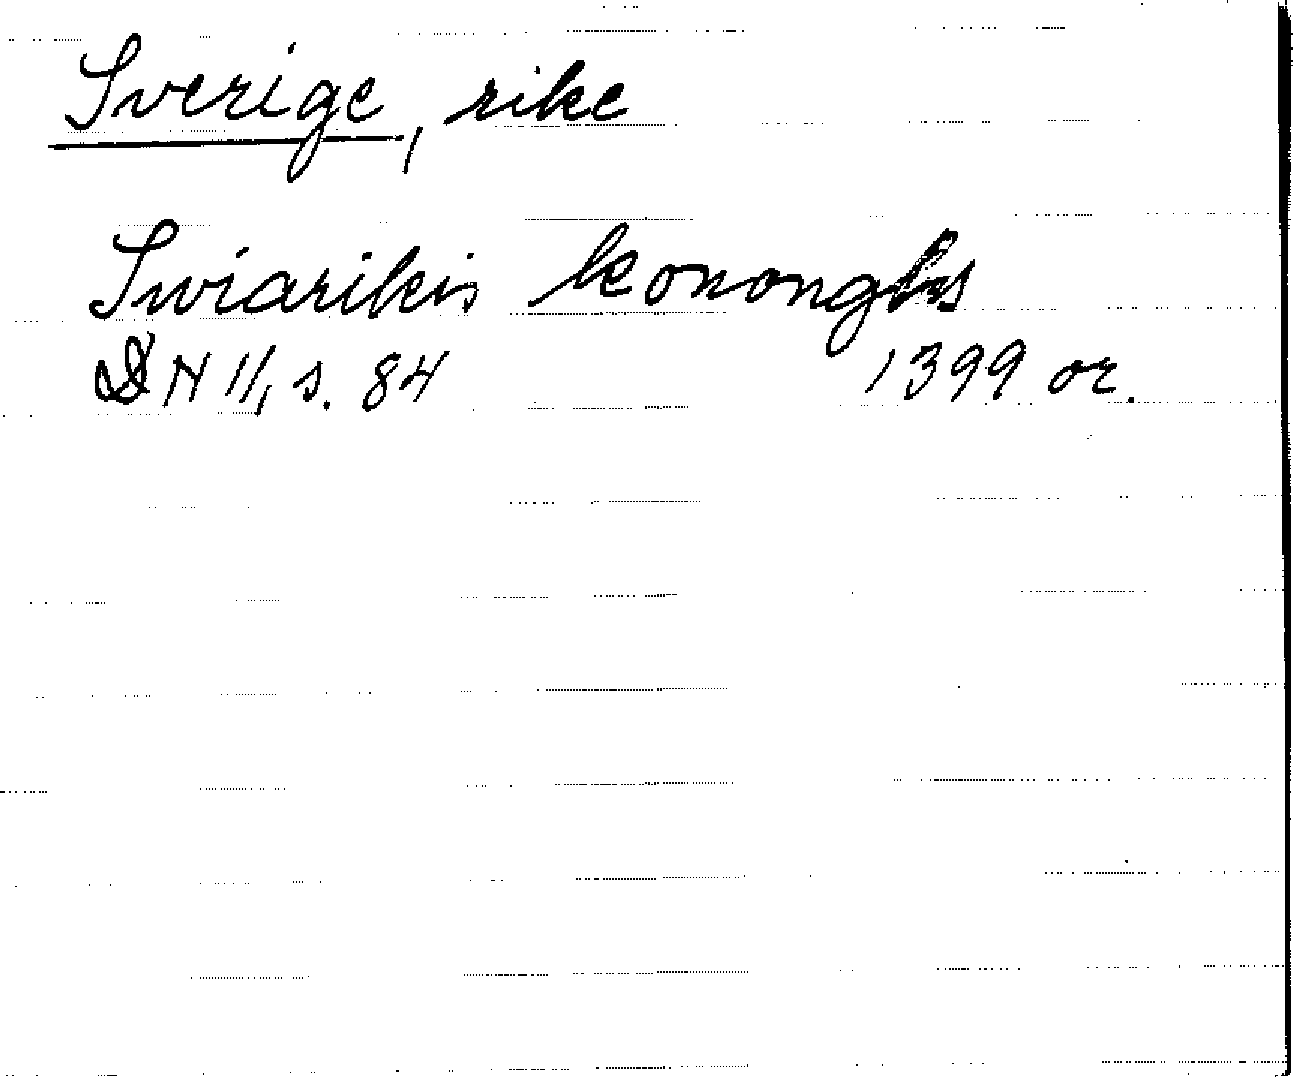 Sverige, rike
Swiarikis kononghs
DN 11, s. 84 1399 or.